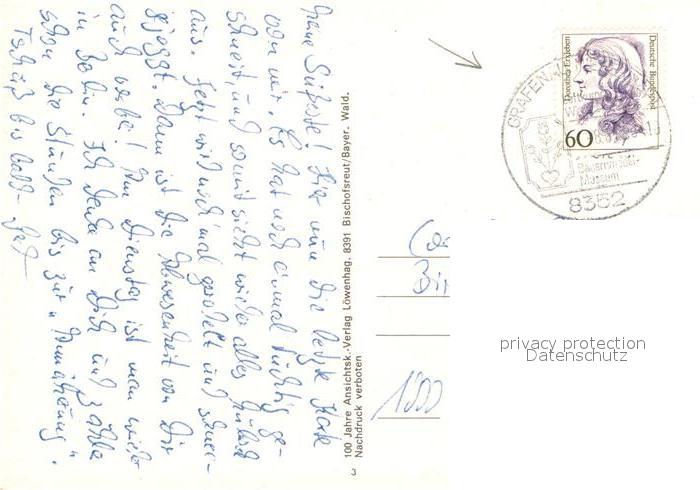 Meine Süßeste! Hier nun die letzte Karte
von mir. Es hat noch einmal tüchtig ge-
schneit und somit sieht wieder alles hübsch
aus. Jetzt wird noch mal gerodelt und schnee-
gejoggt. Dann ist die Abwesenheit von Dir
auch vorbei! Am Dienstag ist man wieder
in Berlin. Ich denke an Dich und zähle
schon die Stunden bis zur "Annäherung".
Tschüß bis bald-
100 Jahre Ansichtsk.-Verlag Löwenhag, 8391 Bischofsreut/Bayer. Wald.
Nachdruck verboten
3
Deutsche Bundespost
Dorothea Erxleben
60
GRAFENAU
Bauernmöbel-
Museum
8352
1000
privacy protection
Datenschutz